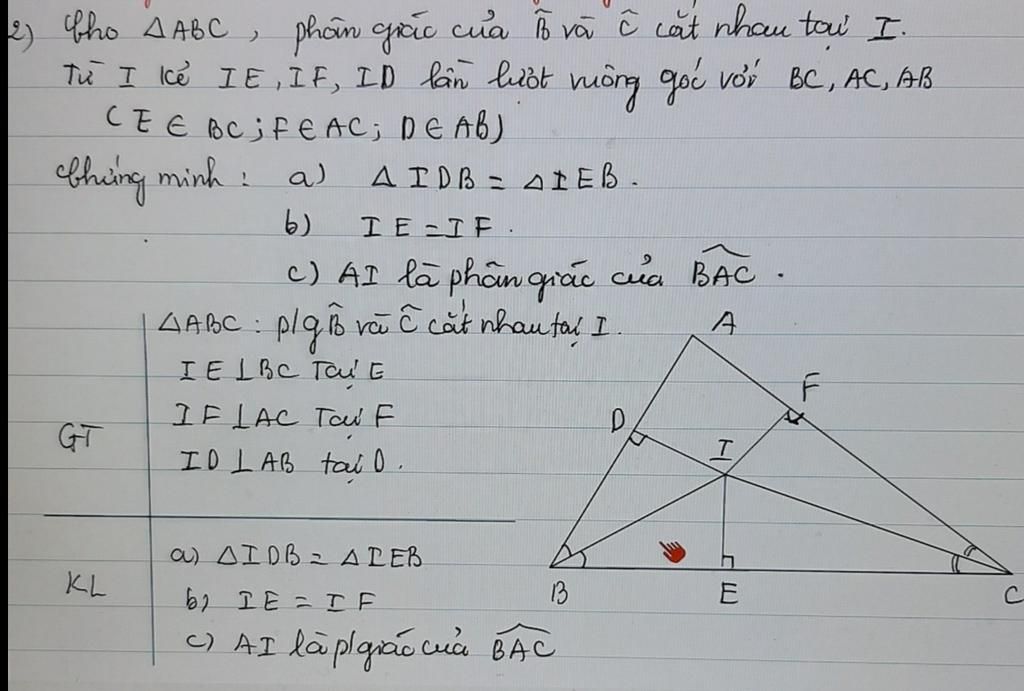 2) Cho △ABC, phân giác của B̂ và Ĉ cắt nhau tại I.
Từ I kẻ IE, IF, ID lần lượt vuông góc với BC, AC, AB
(E ∈ BC; F ∈ AC; D ∈ AB)
Chứng minh: a) △IDB = △IEB.
b) IE = IF.
c) AI là phân giác của \widehat{BAC}.
GT
△ABC: p/g B̂ và Ĉ cắt nhau tại I.
IE ⊥ BC Tại E
IF ⊥ AC Tại F
ID ⊥ AB tại D.
KL
a) △IDB = △IEB
b) IE = IF
c) AI là p/giác của \widehat{BAC}
A
F
D
I
B
E
C